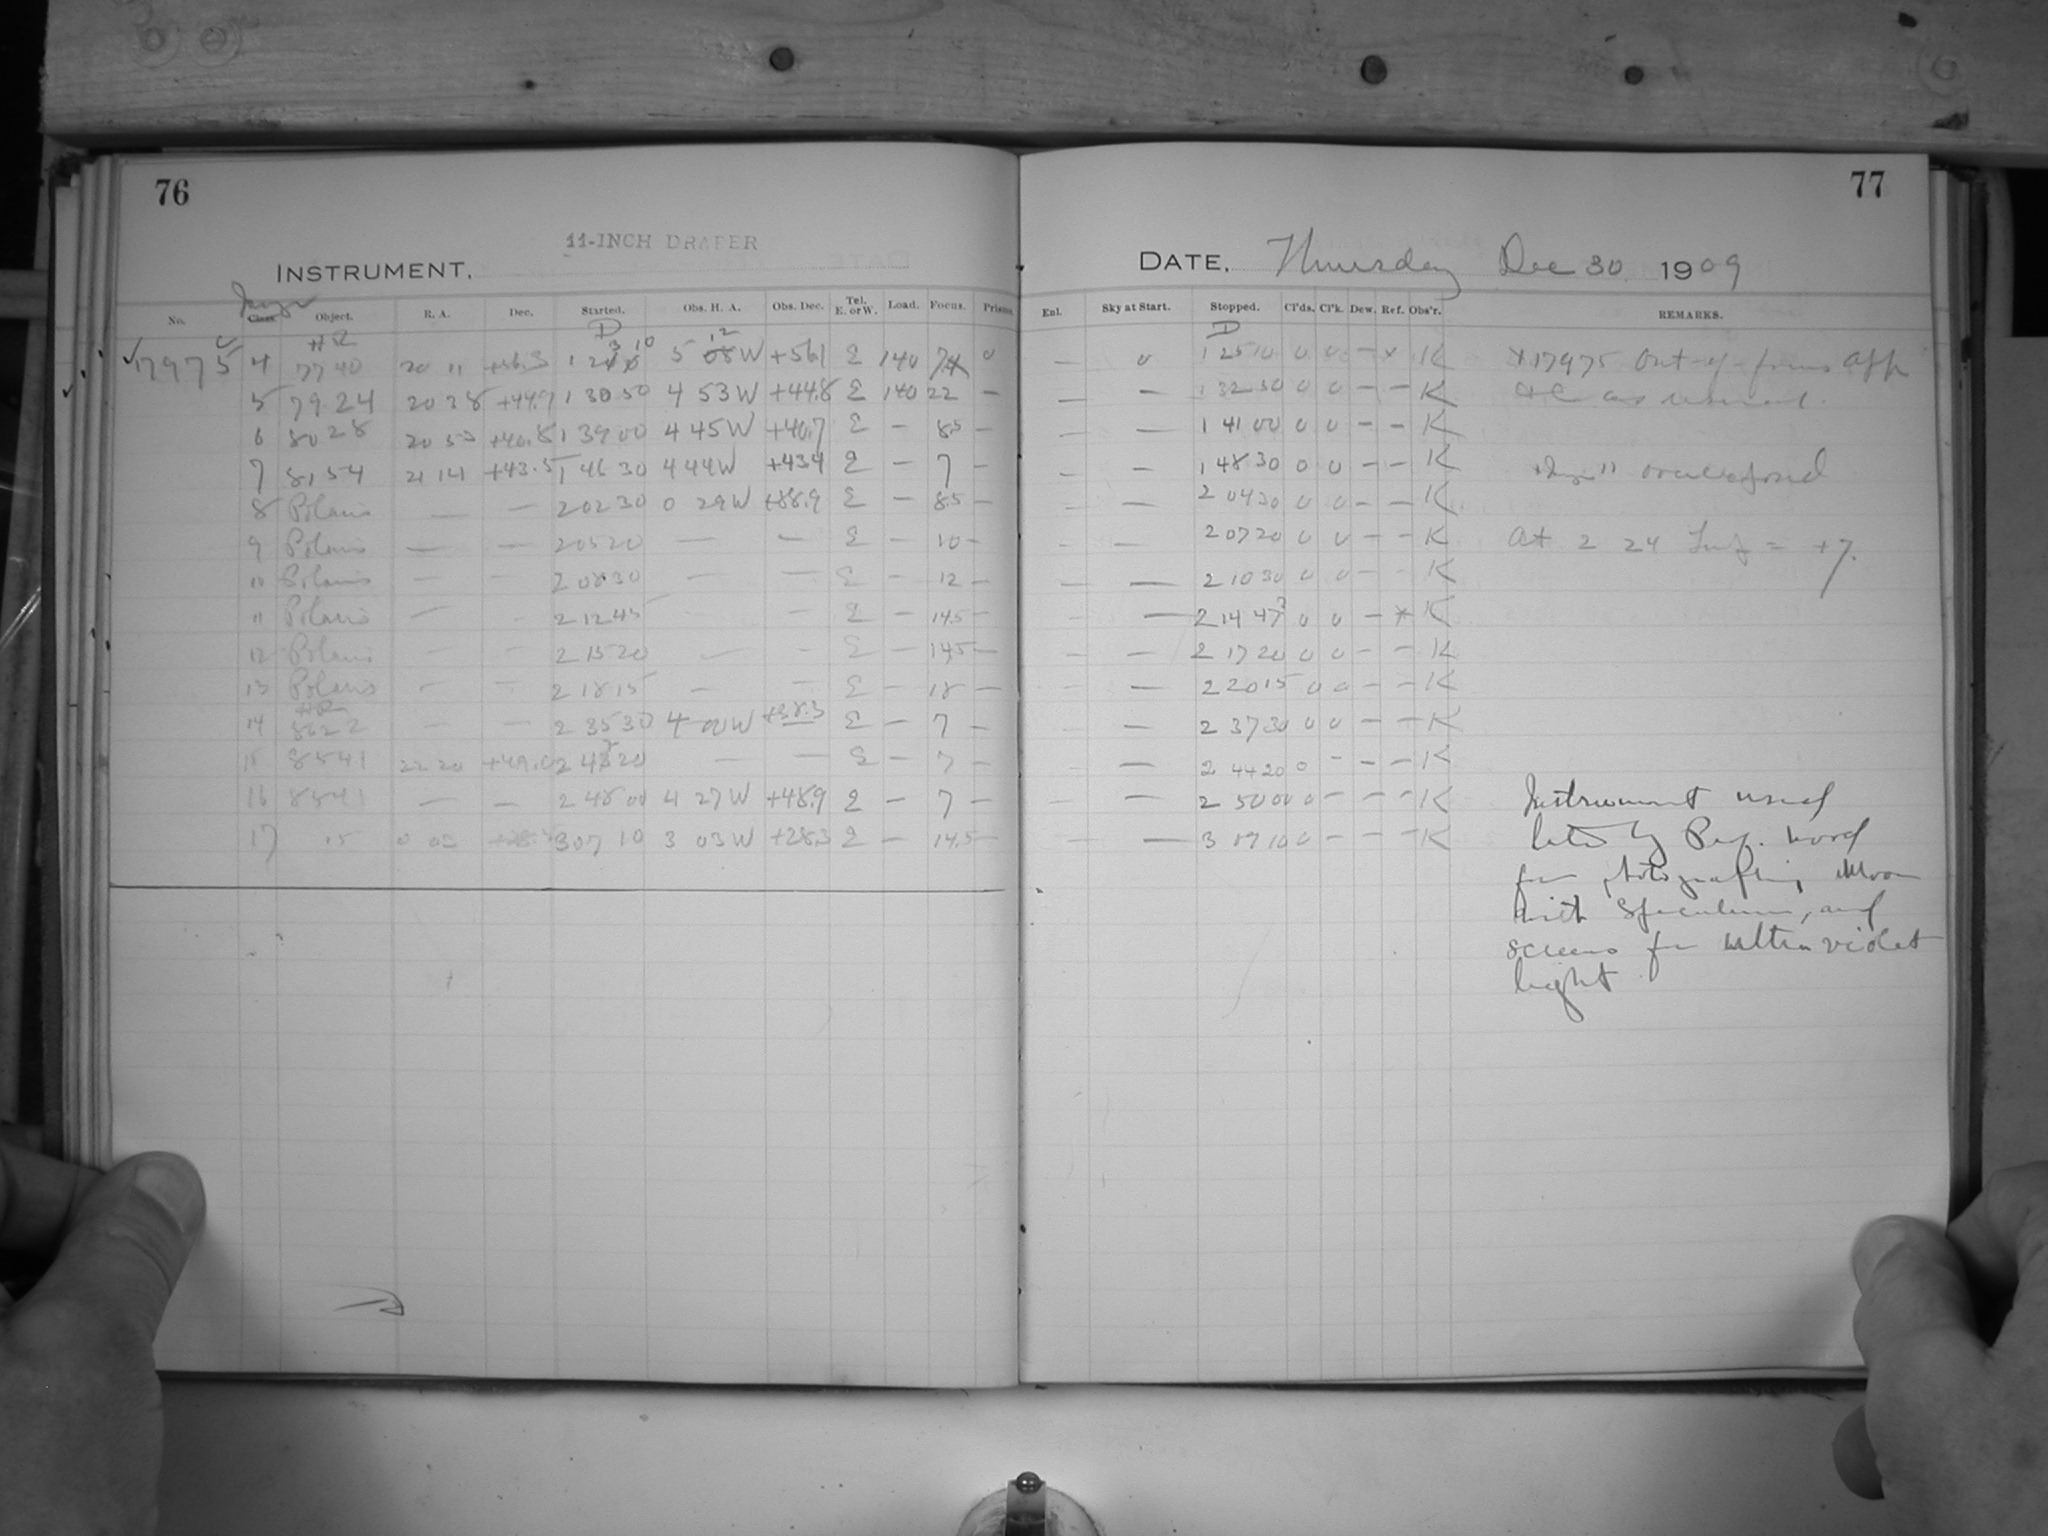 76
11-INCH DRAPER
INSTRUMENT.
No. Class. Object. R. A. Dec. Started. Obs. H. A. Obs. Dec. Tel. E. or W. Load. Focus. Prisms.
HR D
17975 4 7740 20 11 +56.3 5 W +56.1 E 140 0
5 7924 20 38 +44.9 1 30 50 4 53 W +44.8 E 140 22 —
6 8028 20 53 +40.8 1 39 00 4 45 W +40.7 E — 8.5 —
7 8154 21 14 +43.5 1 46 30 4 44 W +43.4 E — 7 —
8 Polaris — — 2 02 30 0 29 W +88.9 E — 8.5 —
9 Polaris — — 2 05 20 — — E — 10 —
10 Polaris — — 2 08 30 — — E — 12 —
11 Polaris — - 2 12 45 E — 14.5 —
12 Polaris — — 2 15 20 — — E — 14.5 —
13 Polaris — — 2 18 15 — — E — 18 —
HR
14 8622 — — 2 35 30 4 00 W +38.3 E — 7 —
15 8541 22 20 +49.0 2 20 — — E — 7 —
16 8541 — — 2 48 00 4 27 W +48.9 E — 7 —
17 15 0 03 3 07 10 3 03 W +28.3 E — 14.5 —
77
DATE. Thursday Dec 30 1909
Enl. Sky at Start. Stopped. Cl'ds. Cl'k. Dew. Ref. Obs'r. REMARKS.
D
— 0 1 25 10 0 0 — x K x17975 Out-of-focus app
— — 1 32 50 0 0 — — K as usual.
— — 1 41 00 0 0 — — K
— — 1 48 30 0 0 — — K
— — 2 04 30 0 0 — — K
— — 2 07 20 0 0 — — K At 2 24 = +7.
— — 2 10 30 0 0 — — K
— — 2 14 47 0 0 — x K
— — 2 17 20 0 0 — — K
— — 2 20 15 0 0 — — K
— — 2 37 30 0 0 — — K
— — 2 44 20 0 - — — K
— — 2 50 00 0 — — — K Instrument used
— — 3 10 0 — — — K later by Prof. Wood
for photographing Moon
with Speculum, and
screens for ultra violet
light.